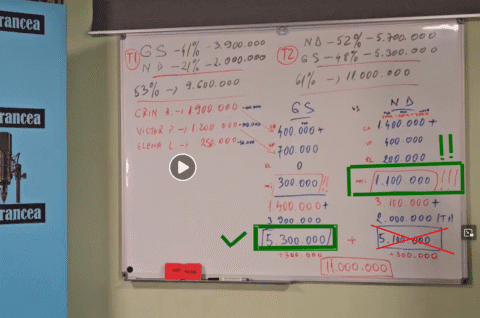 rancea
rancea
rancea
T1
GS -41% -3.900.000
ND -21% -2.000.000
53% -> 9.600.000
T2
ND -52% -5.700.000
GS -48% -5.300.000
61% -> 11.000.000
CRIN A. -> 1.900.000
VICTOR P -> 1.200.000
ELENA L -> 250.000
GS
400.000 +
700.000
0
300.000 !!
1.400.000 +
3.900.000
5.300.000
+300.000
ND
1.400.000 +
400.000
200.000
!!
1.100.000 !!!
3.100.000 +
2.000.000 (T1)
+
5.100.000
+300.000
11.000.000